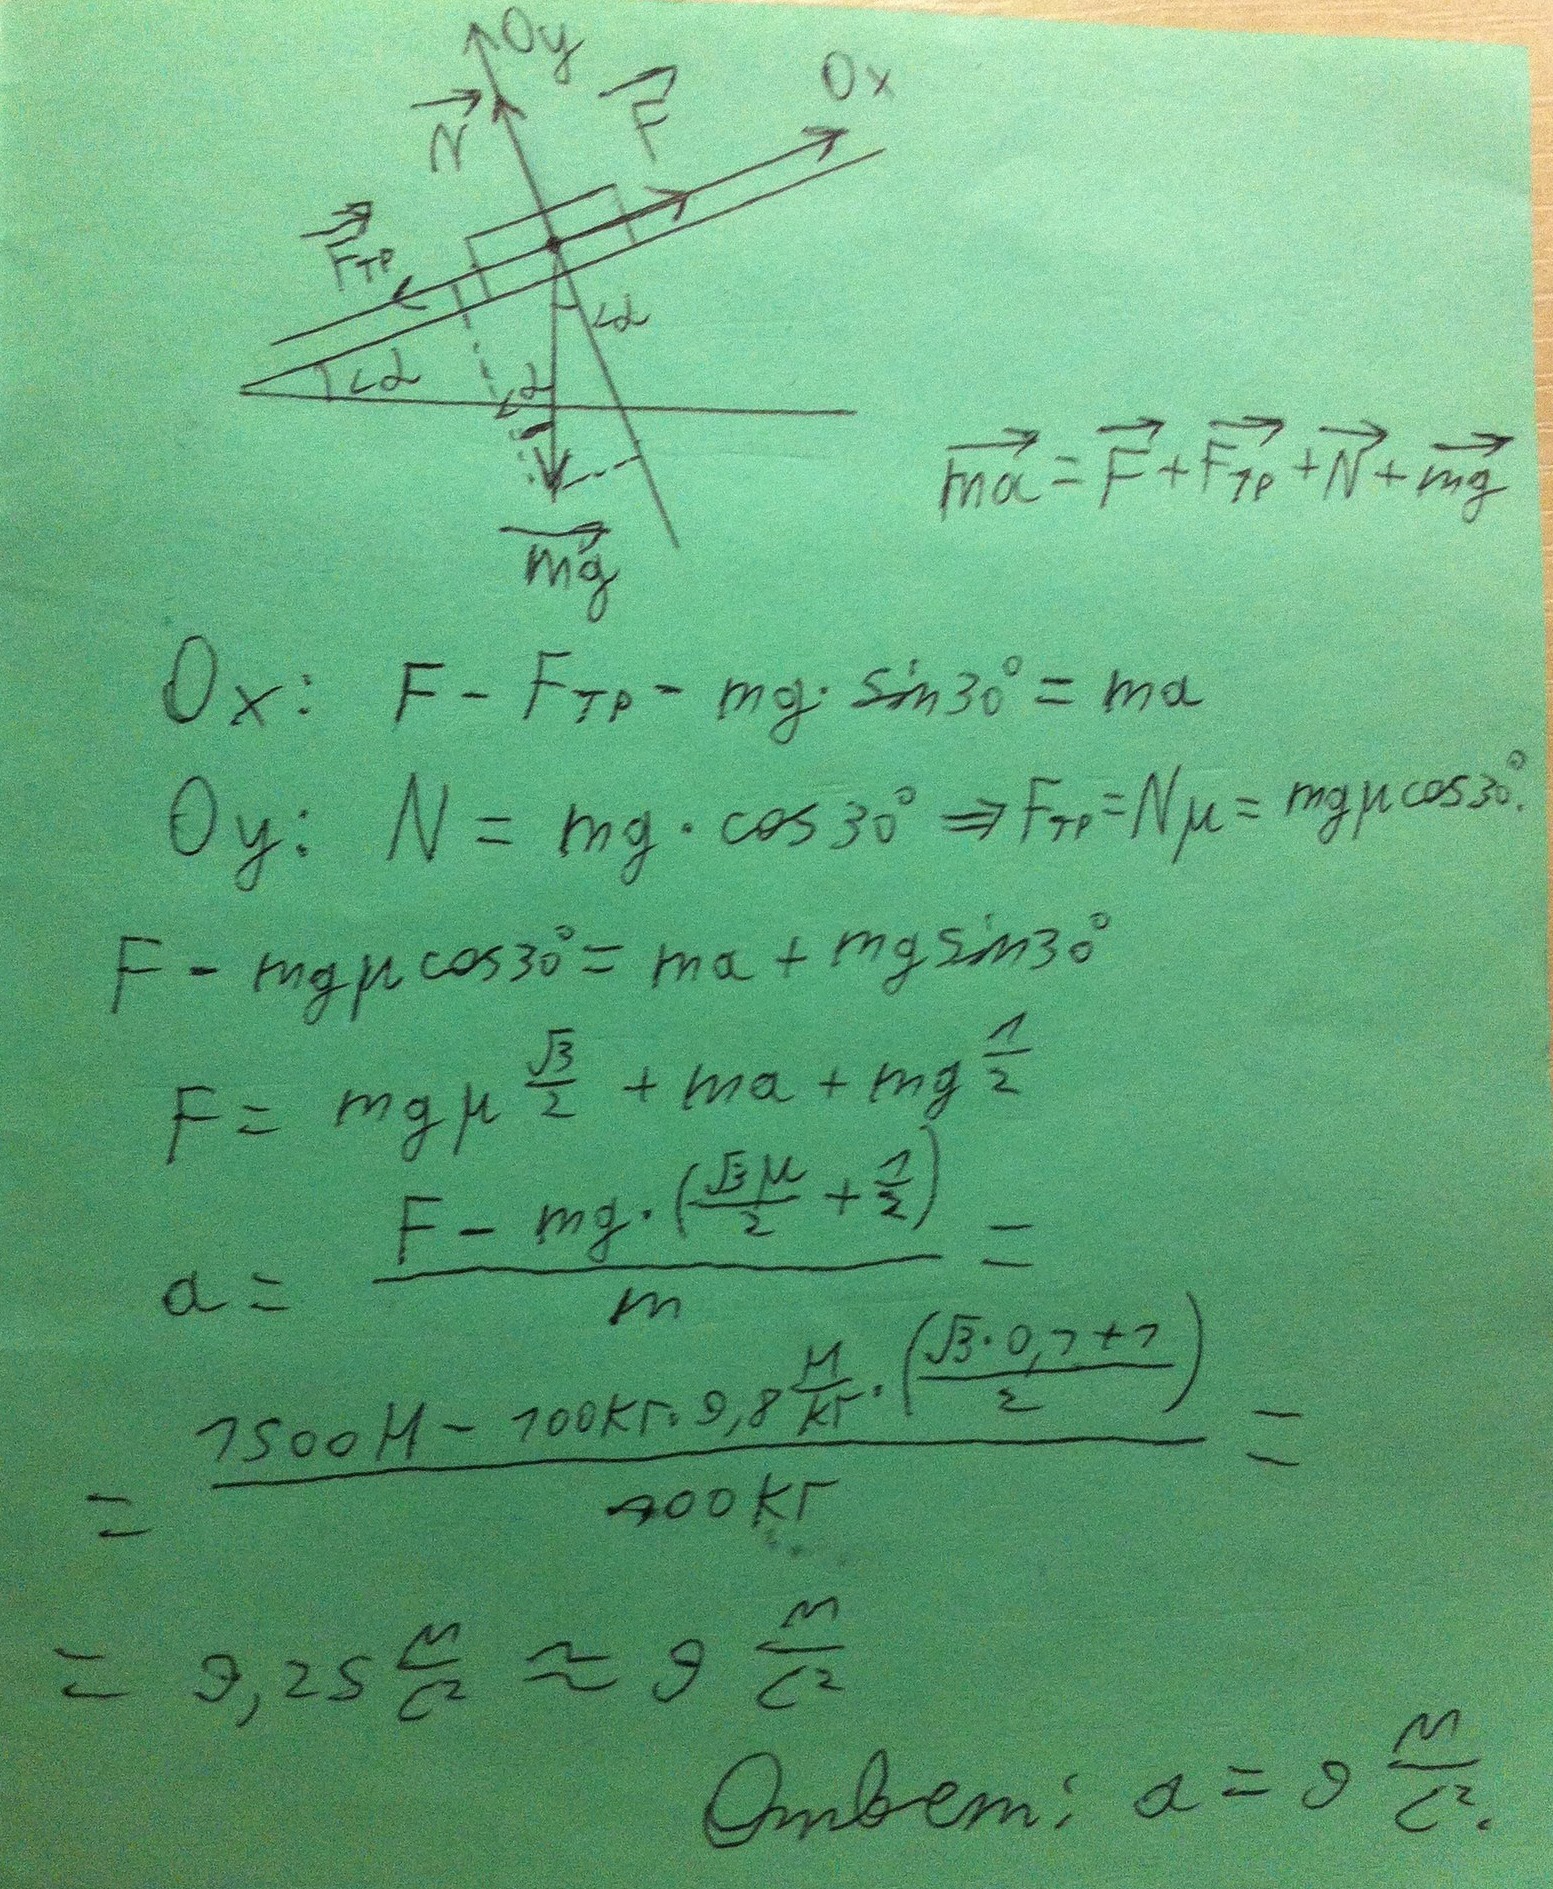 Oy
Ox
N⃗
F⃗
F⃗тр
∠α
∠α
∠α
mg⃗
ma⃗ = F⃗ + F⃗тр + N⃗ + mg⃗
Ox: F - Fтр - mg · sin30° = ma
Oy: N = mg · cos30° ⇒ Fтр = Nμ = mgμcos30°.
F - mgμcos30° = ma + mgsin30°
F = mgμ √3/2 + ma + mg 1/2
a = (F - mg · (√3μ/2 + 1/2))/m =
= (1500Н - 100кг · 9,8 Н/кг · ((√3 · 0,1 + 1)/2))/100кг =
= 9,25 м/с² ≈ 9 м/с²
Ответ: a = 9 м/с².